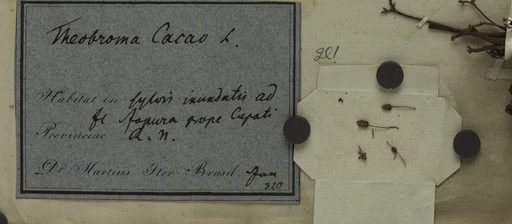 Theobroma Cacao L.
Habitat in sylvis inundatis ad
fl Japura prope Cupati
Provinciae R. N.
Dr Martius Iter Brasil. Jan
320
201